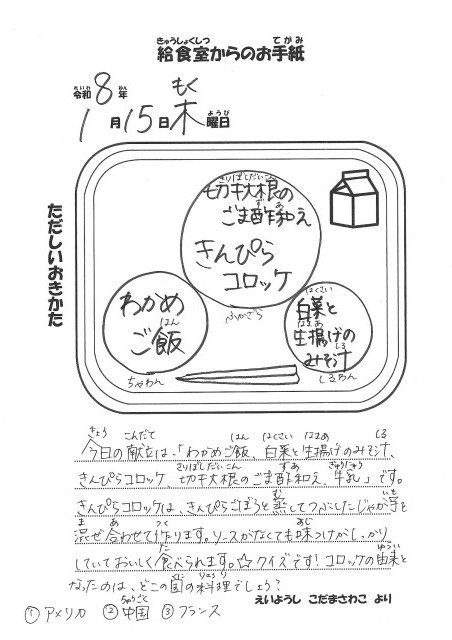 きゅうしょくしつ てがみ
給食室からのお手紙
れいわ ねん もく
令和8年
1月15日木曜日
ようび
ただしいおきかた
きりぼしだいこん
切干大根の
ず あ
ごま酢和え
きんぴら
コロッケ
ふかざら
わかめ
はん
ご飯
ちゃわん
はくさい
白菜と
なまあ
生揚げの
しる
みそ汁
しるわん
きょう こんだて はん はくさい なまあ しる
今日の献立は、「わかめご飯、白菜と生揚げのみそ汁、
きりぼしだいこん ずあ ぎゅうにゅう
きんぴらコロッケ、切干大根のごま酢和え、牛乳」です。
む いも
きんぴらコロッケは、きんぴらごぼうと蒸してつぶしたじゃが芋を
ま あ つく あじ
混ぜ合わせて作ります。ソースがなくても味つけがしっかり
た ゆらい
していておいしく食べられます。☆クイズです!コロッケの由来と
くに りょうり
なったのは、どこの国の料理でしょう?
ちゅうごく
①アメリカ ②中国 ③フランス
えいようし こだまさわこ より